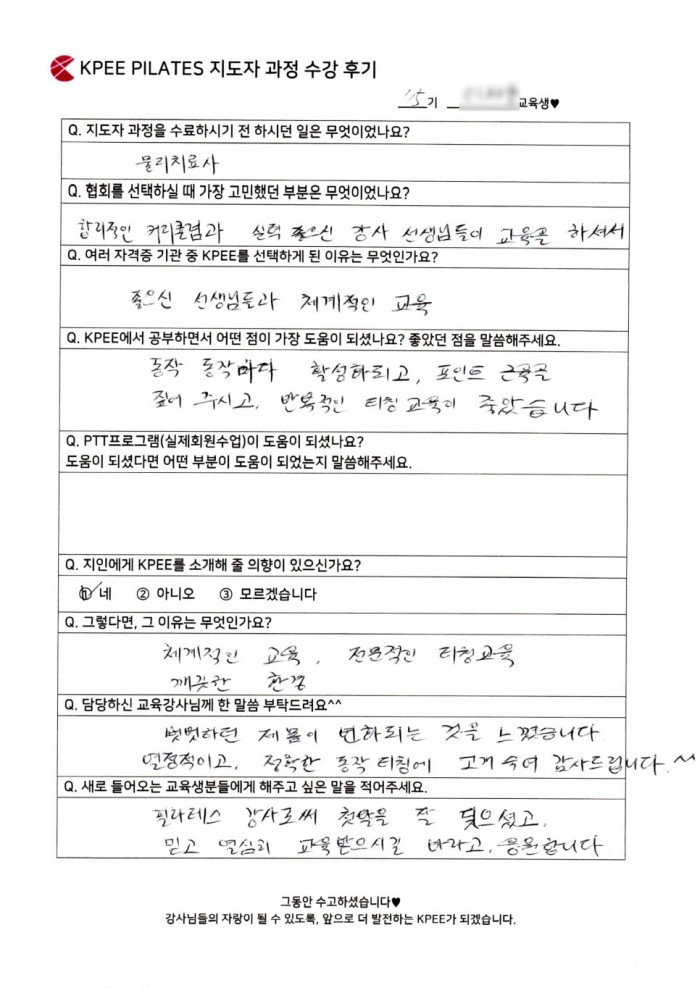 KPEE PILATES 지도자 과정 수강 후기
15기 교육생♥
Q. 지도자 과정을 수료하시기 전 하시던 일은 무엇이었나요?
물리치료사
Q. 협회를 선택하실 때 가장 고민했던 부분은 무엇이었나요?
합리적인 커리큘럼과 실력 좋으신 강사 선생님들이 교육을 하셔서
Q. 여러 자격증 기관 중 KPEE를 선택하게 된 이유는 무엇인가요?
좋으신 선생님들과 체계적인 교육
Q. KPEE에서 공부하면서 어떤 점이 가장 도움이 되셨나요? 좋았던 점을 말씀해주세요.
동작 동작마다 활성화되고, 포인트 근육을
짚어 주시고, 반복적인 티칭교육이 좋았습니다
Q. PTT프로그램(실제회원수업)이 도움이 되셨나요?
도움이 되셨다면 어떤 부분이 도움이 되었는지 말씀해주세요.
Q. 지인에게 KPEE를 소개해 줄 의향이 있으신가요?
① 네 ② 아니오 ③ 모르겠습니다
Q. 그렇다면, 그 이유는 무엇인가요?
체계적인 교육, 전문적인 티칭교육
깨끗한 환경
Q. 담당하신 교육강사님께 한 말씀 부탁드려요^^
뻣뻣하던 제 몸이 변화되는 것을 느꼈습니다
열정적이고, 정확한 동작 티칭에 고개 숙여 감사드립니다.^^
Q. 새로 들어오는 교육생분들에게 해주고 싶은 말을 적어주세요.
필라테스 강사로써 첫발을 잘 딛으셨고,
믿고 열심히 교육받으시길 바라고, 응원합니다
그동안 수고하셨습니다♥
강사님들의 자랑이 될 수 있도록, 앞으로 더 발전하는 KPEE가 되겠습니다.